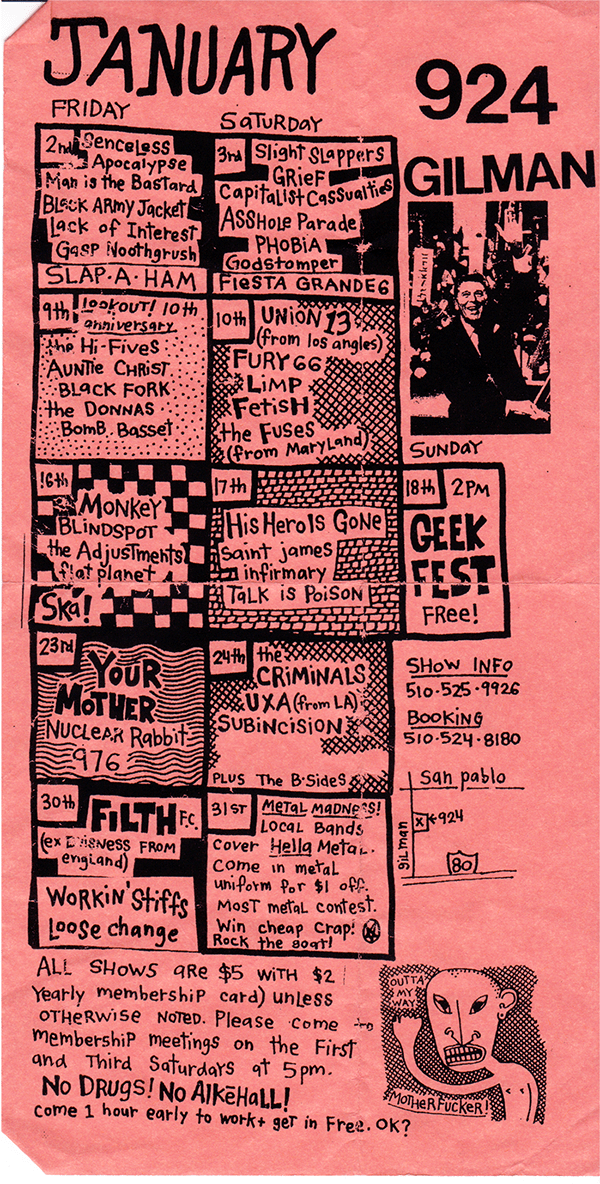 JANUARY
924
GILMAN
FRIDAY
SATURDAY
2nd
Senceless
Apocalypse
Man is the Bastard
Black Army Jacket
Lack of Interest
Gasp Noothgrush
SLAP·A·HAM
3rd
Slight Slappers
GRieF
Capitalist Cassualties
ASSHole Parade
PHOBIA
Godstomper
FiESTA GRANDE6
9th
LOOKOUT! 10th
anniversary
the Hi-Fives
AUNTiE CHRIST
BLACK FORK
the DONNAS
BomB Basset
10th
UNION 13
(from los angles)
FURY 66
LiMP
FetisH
the Fuses
(from MaryLand)
SUNDAY
16th
MONKEY
BLINDSPOT
the Adjustments
flat planet
Ska!
17th
His Hero Is Gone
Saint james
infirmary
TaLK is PoisoN
18th
2PM
GEEK
FEST
FRee!
23rd
YOUR
MOTHER
NUCLEAR Rabbit
976
24th
the
CRiMiNALS
UXA (from LA)
SUBINCISION
PLUS The B·Sides
SHOW INFO
510-525-9926
BOOKING
510-524-8180
San pablo
gilman
X
924
80
30th
FILTH F.C.
(ex FROM
england)
WORKIN' Stiffs
Loose change
31ST
Metal MadNess!
LOCAL BANDS
COVER Hella MeTaL.
Come in metal
uniform for $1 off.
MOST METAL CONTEST.
Win cheap Crap!
Rock the goat!
ALL SHOWS aRE $5 WITH $2
Yearly membership card) unless
OTHERWISE NOTED. Please come to
membership meetings on the First
and Third Saturdays at 5pm.
No DRUGS! No AlKēHaLL!
come 1 hour early to work+ get in Free. OK?
OUTTA
MY
WAY
MOTHERFUCKER!